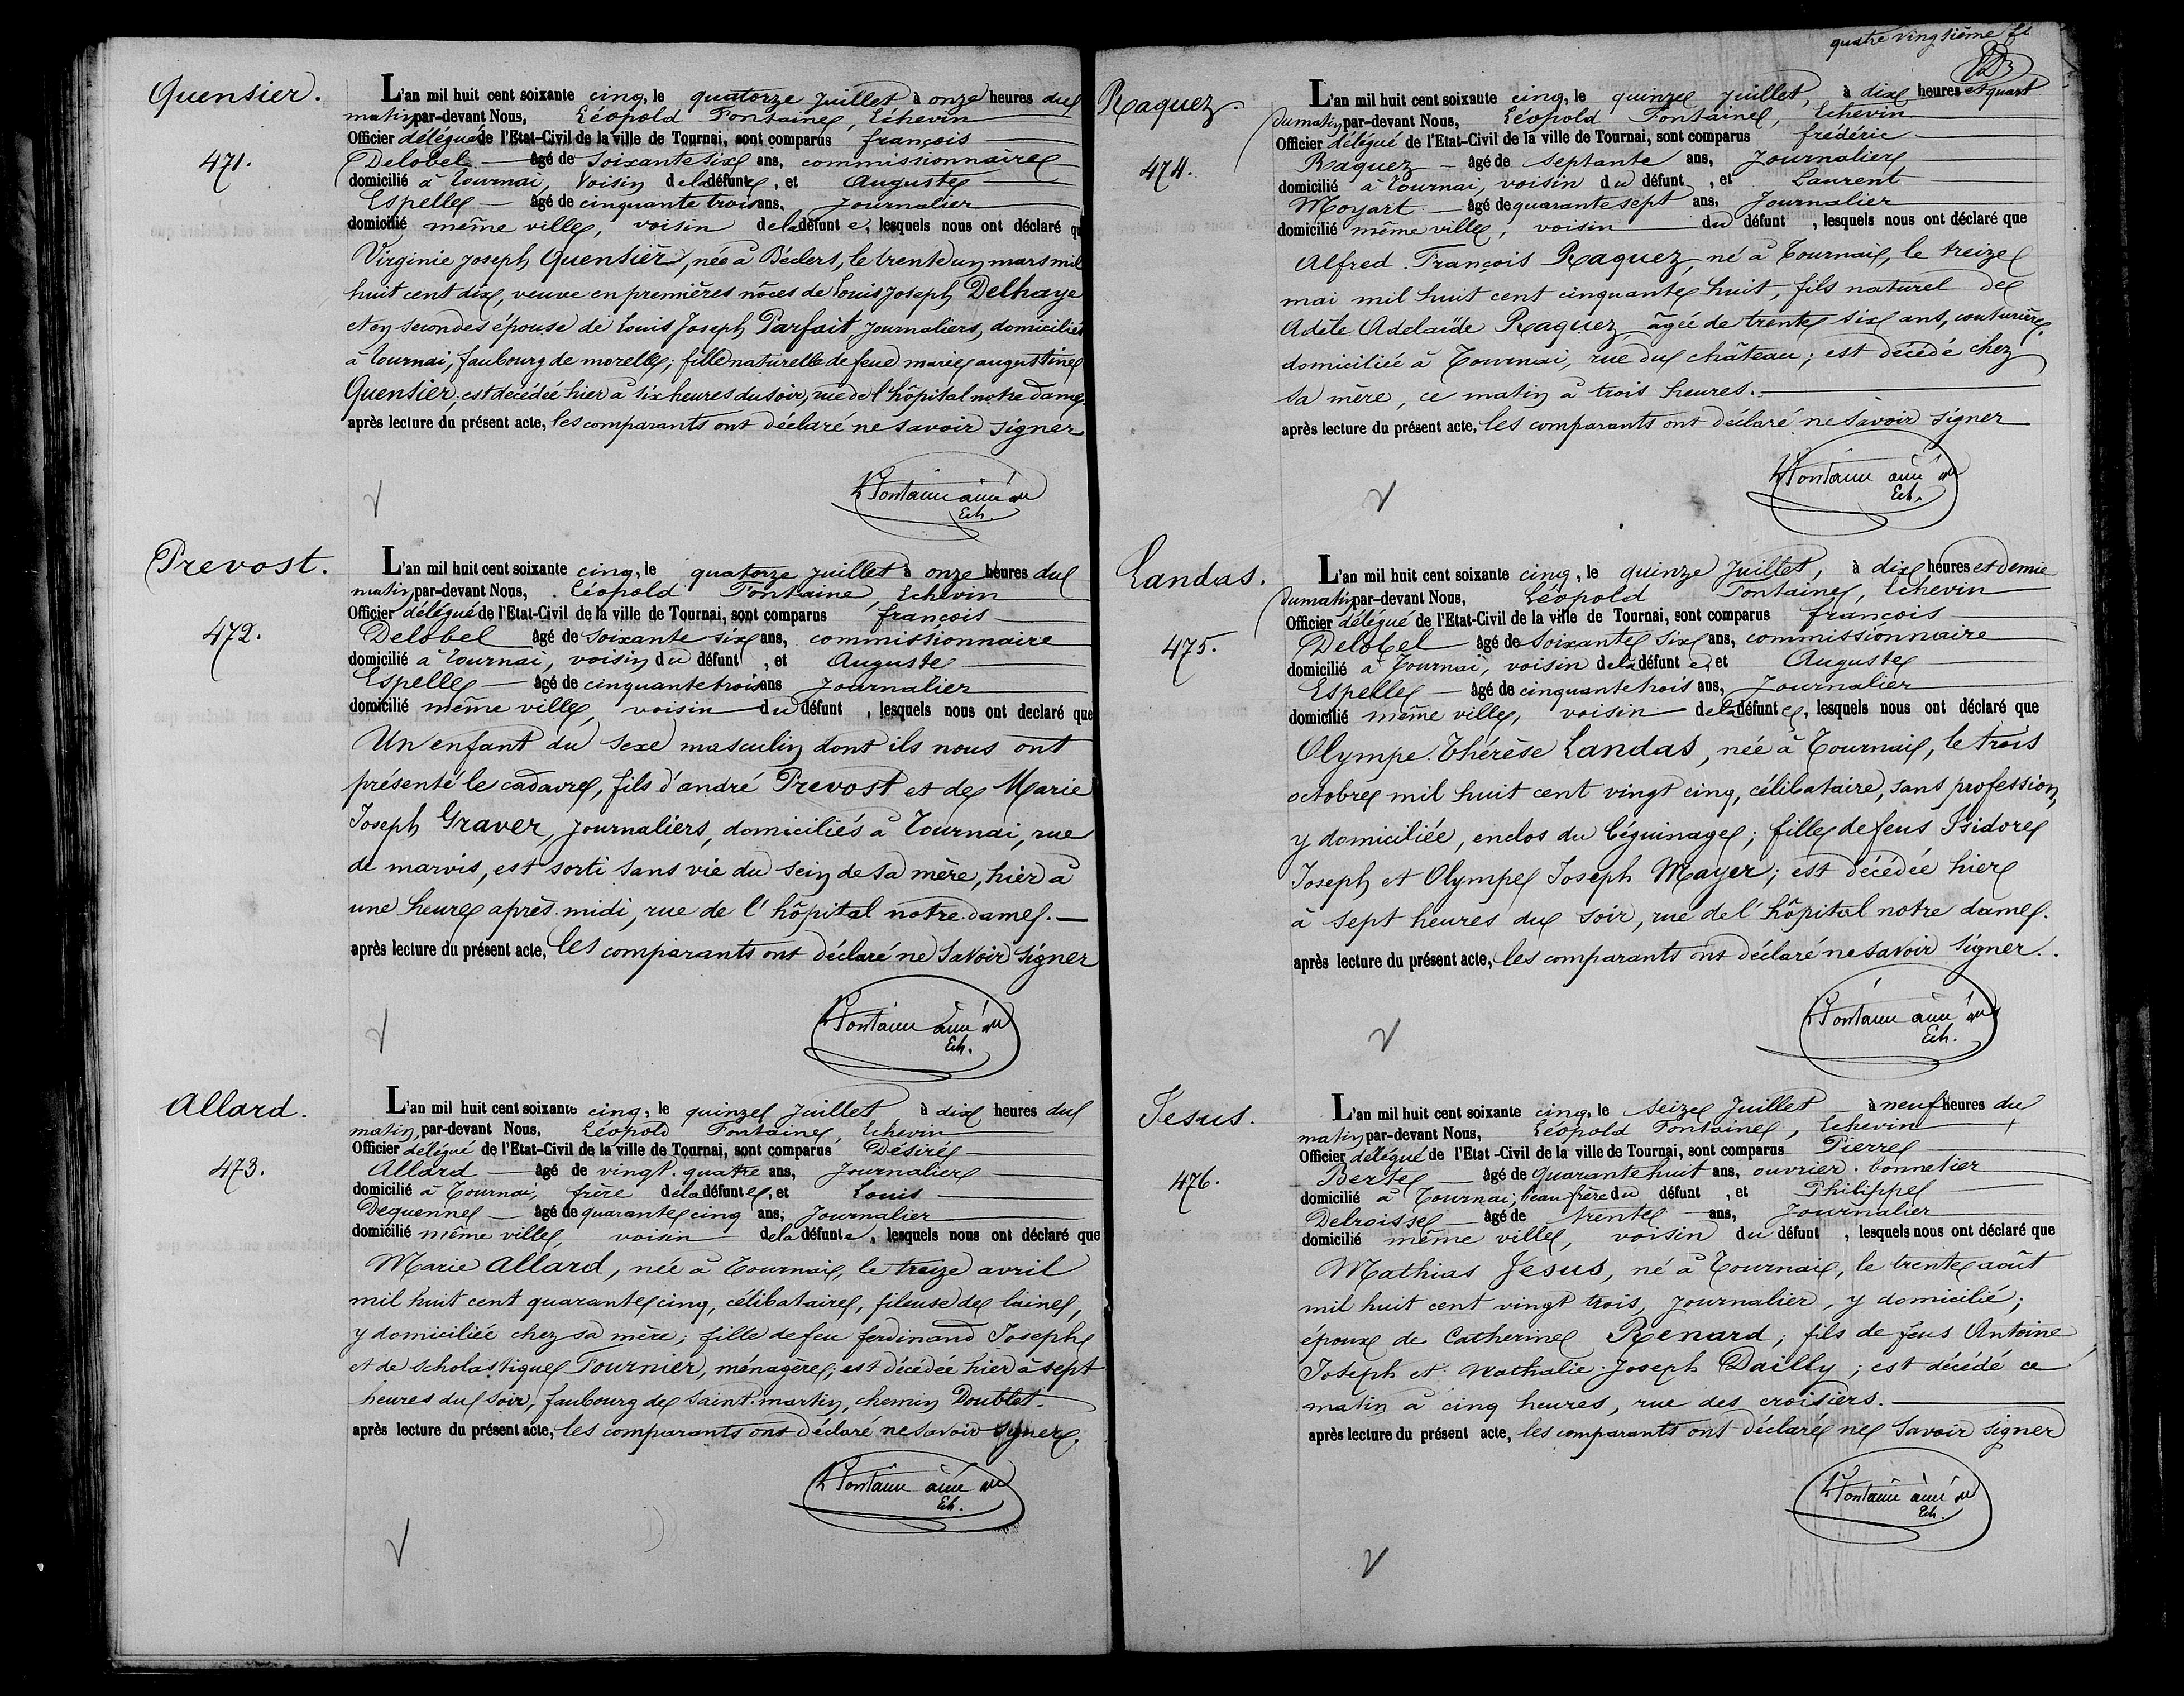 Quensier.
471.
L'an mil huit cent soixante cinq, le quatorze juillet à onze heures du
matin par-devant Nous, Léopold Fontaine, Echevin
Officier délégué de l'Etat-Civil de la ville de Tournai, sont comparus françois
Delobel âgé de soixante six ans, commissionnaire
domicilié à Tournai, voisin de la défunte, et Auguste
Espelle âgé de cinquante trois ans, Journalier
domicilié même ville, voisin de la défunte, lesquels nous ont déclaré qu
Virginie joseph Quensier, née à Béclers, le trente un mars mil
huit cent dix, veuve en premières nôces de Louis Joseph Delhaye
et en secondes épouse de Louis Joseph Parfait journaliers, domiciliés
à Tournai, faubourg de morelle; fille naturelle de feue marie augustine
Quensier, est décédée hier à six heures du soir, rue de l'hôpital notre dame.
après lecture du présent acte, les comparants ont déclaré ne savoir signer
L Fontaine ainé
Ech.
Prevost.
472.
L'an mil huit cent soixante cinq, le quatorze juillet à onze heures du
matin par-devant Nous, Léopold Fontaine, Echevin
Officier délégué de l'Etat-Civil de la ville de Tournai, sont comparus françois
Delobel âgé de soixante six ans, commissionnaire
domicilié à Tournai, voisin du défunt, et Auguste
Espelle âgé de cinquante trois ans Journalier
domicilié même ville, voisin du défunt, lesquels nous ont declaré que
Un enfant du sexe masculin dont ils nous ont
présenté le cadavre, fils d'andré Prevost et de Marie
Joseph Graver, journaliers, domiciliés à Tournai, rue
de marvis, est sorti sans vie du sein de sa mère, hier à
une heure après-midi, rue de l'hôpital notre-dame.
après lecture du présent acte, les comparants ont déclaré ne savoir signer
L Fontaine ainé
Ech.
Allard.
473.
L'an mil huit cent soixante cinq, le quinze juillet à dix heures du
matin, par-devant Nous, Léopold Fontaine, Echevin
Officier délégué de l'Etat-Civil de la ville de Tournai, sont comparus Désiré
Allard âgé de vingt-quatre ans, Journalier
domicilié à Tournai, frère de la défunte, et Louis
Dequenne âgé de quarante cinq ans, Journalier
domicilié même ville, voisin de la défunte, lesquels nous ont déclaré que
Marie Allard, née à Tournai, le treize avril
mil huit cent quarante cinq, célibataire, fileuse de laine,
y domiciliée chez sa mère; fille de feu ferdinand Joseph
et de scholastique Tournier, ménagère; est décédée hier à sept
heures du soir, faubourg de saint-martin, chemin Doublet.
après lecture du présent acte, les comparants ont déclaré ne savoir signer.
L Fontaine ainé
Ech.
quatre vingtième
Raquez.
474.
L'an mil huit cent soixante cinq, le quinze juillet, à dix heures et quart
du matin par-devant Nous, Léopold Fontaine, Echevin
Officier délégué de l'Etat-Civil de la ville de Tournai, sont comparus frédéric
Raquez âgé de septante ans, Journalier
domicilié à Tournai, voisin du défunt, et Laurent
Moyart âgé de quarante sept ans, Journalier
domicilié même ville, voisin du défunt, lesquels nous ont déclaré que
Alfred François Raquez, né à Tournai, le treize
mai mil huit cent cinquante huit, fils naturel de
Adèle Adelaïde Raquez, âgée de trente six ans, couturière,
domiciliée à Tournai, rue du château; est décédé chez
sa mère, ce matin à trois heures.
après lecture du présent acte, les comparants ont déclaré ne savoir signer
L Fontaine ainé
Ech.
Landas.
475.
L'an mil huit cent soixante cinq, le quinze Juillet, à dix heures et demie
du matin par-devant Nous, Léopold Fontaine, Echevin
Officier délégué de l'Etat-Civil de la ville de Tournai, sont comparus françois
Delobel âgé de soixante six ans, commissionnaire
domicilié à Tournai, voisin de la défunte, et Auguste
Espelle âgé de cinquante trois ans, Journalier
domicilié même ville, voisin de la défunte, lesquels nous ont déclaré que
Olympe Thérèse Landas, née à Tournai, le trois
octobre mil huit cent vingt cinq, célibataire, sans profession,
y domiciliée, enclos du béguinage; fille de feus Isidore
Joseph et Olympe Joseph Mayer; est décédée hier
à sept heures du soir, rue de l'hôpital notre dame.
après lecture du présent acte, les comparants ont déclaré ne savoir signer.
L Fontaine ainé
Ech.
Jesus.
476.
L'an mil huit cent soixante cinq, le seize Juillet à neuf heures du
matin par-devant Nous, Léopold Fontaine, Echevin
Officier délégué de l'Etat-Civil de la ville de Tournai, sont comparus Pierre
Berte âgé de quarante huit ans, ouvrier bonnetier
domicilié à Tournai, beau frère du défunt, et Philippe
Delroisse âgé de trente ans, Journalier
domicilié même ville, voisin du défunt, lesquels nous ont déclaré que
Mathias Jesus, né à Tournai, le trente août
mil huit cent vingt trois, journalier, y domicilié;
époux de Catherine Renard; fils de feus Antoine
Joseph et Nathalie Joseph Dailly; est décédé ce
matin à cinq heures, rue des croisiers.
après lecture du présent acte, les comparants ont déclaré ne savoir signer
L Fontaine ainé
Ech.